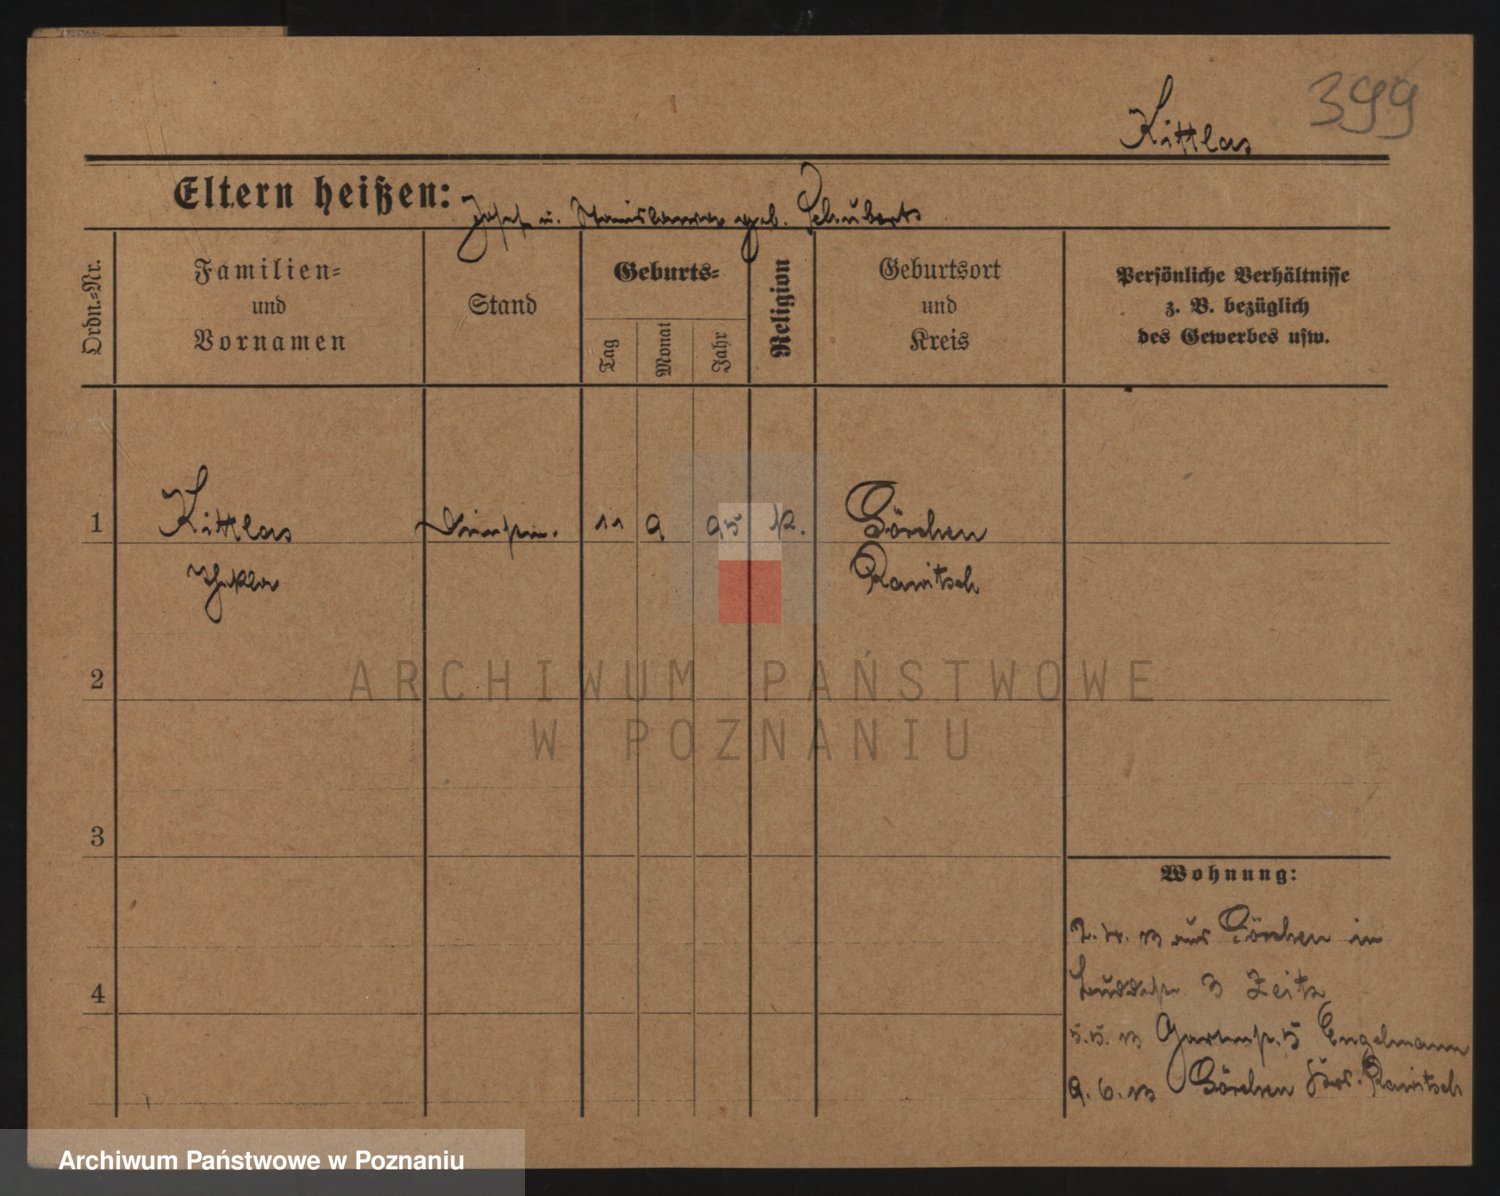 399
Kittlas
Eltern heißen: Josef u. Stanislawa geb. Schubert
Ordn.-Nr.
Familien-
und
Vornamen
Stand
Geburts-
Tag
Monat
Jahr
Religion
Geburtsort
und
Kreis
Persönliche Verhältnisse
z. B. bezüglich
des Gewerbes usw.
1 Kittlas 11 9 95 k. Görchen
Thekla Rawitsch
2
3
4
Wohnung:
aus Görchen in
3 Zeitz
5.5. 13 Gartenstr. 5 Engelmann
9. 6. 13 Görchen Krs. Rawitsch
ARCHIWUM PAŃSTWOWE
W POZNANIU
Archiwum Państwowe w Poznaniu